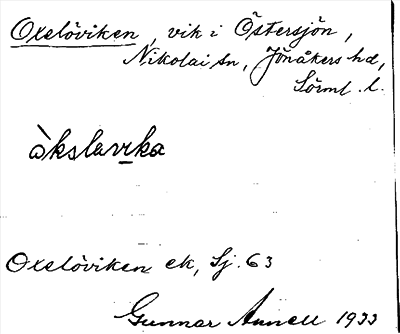 Oxelöviken, vik i Östersjön,
Nikolai sn, Jönåkers hd,
Sörml. l.
òkslavika
Oxelöviken ek, Sj. 63
Gunnar Annell 1933